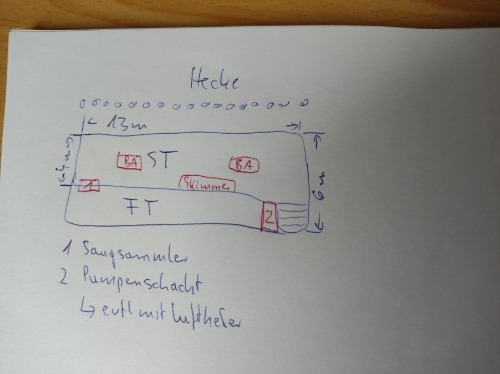 Hecke
13m
BA ST BA
ca 4m
1 Skimmer
6m
FT 2
1 Saugsammler
2 Pumpenschacht
↳ evtl mit Luftheber